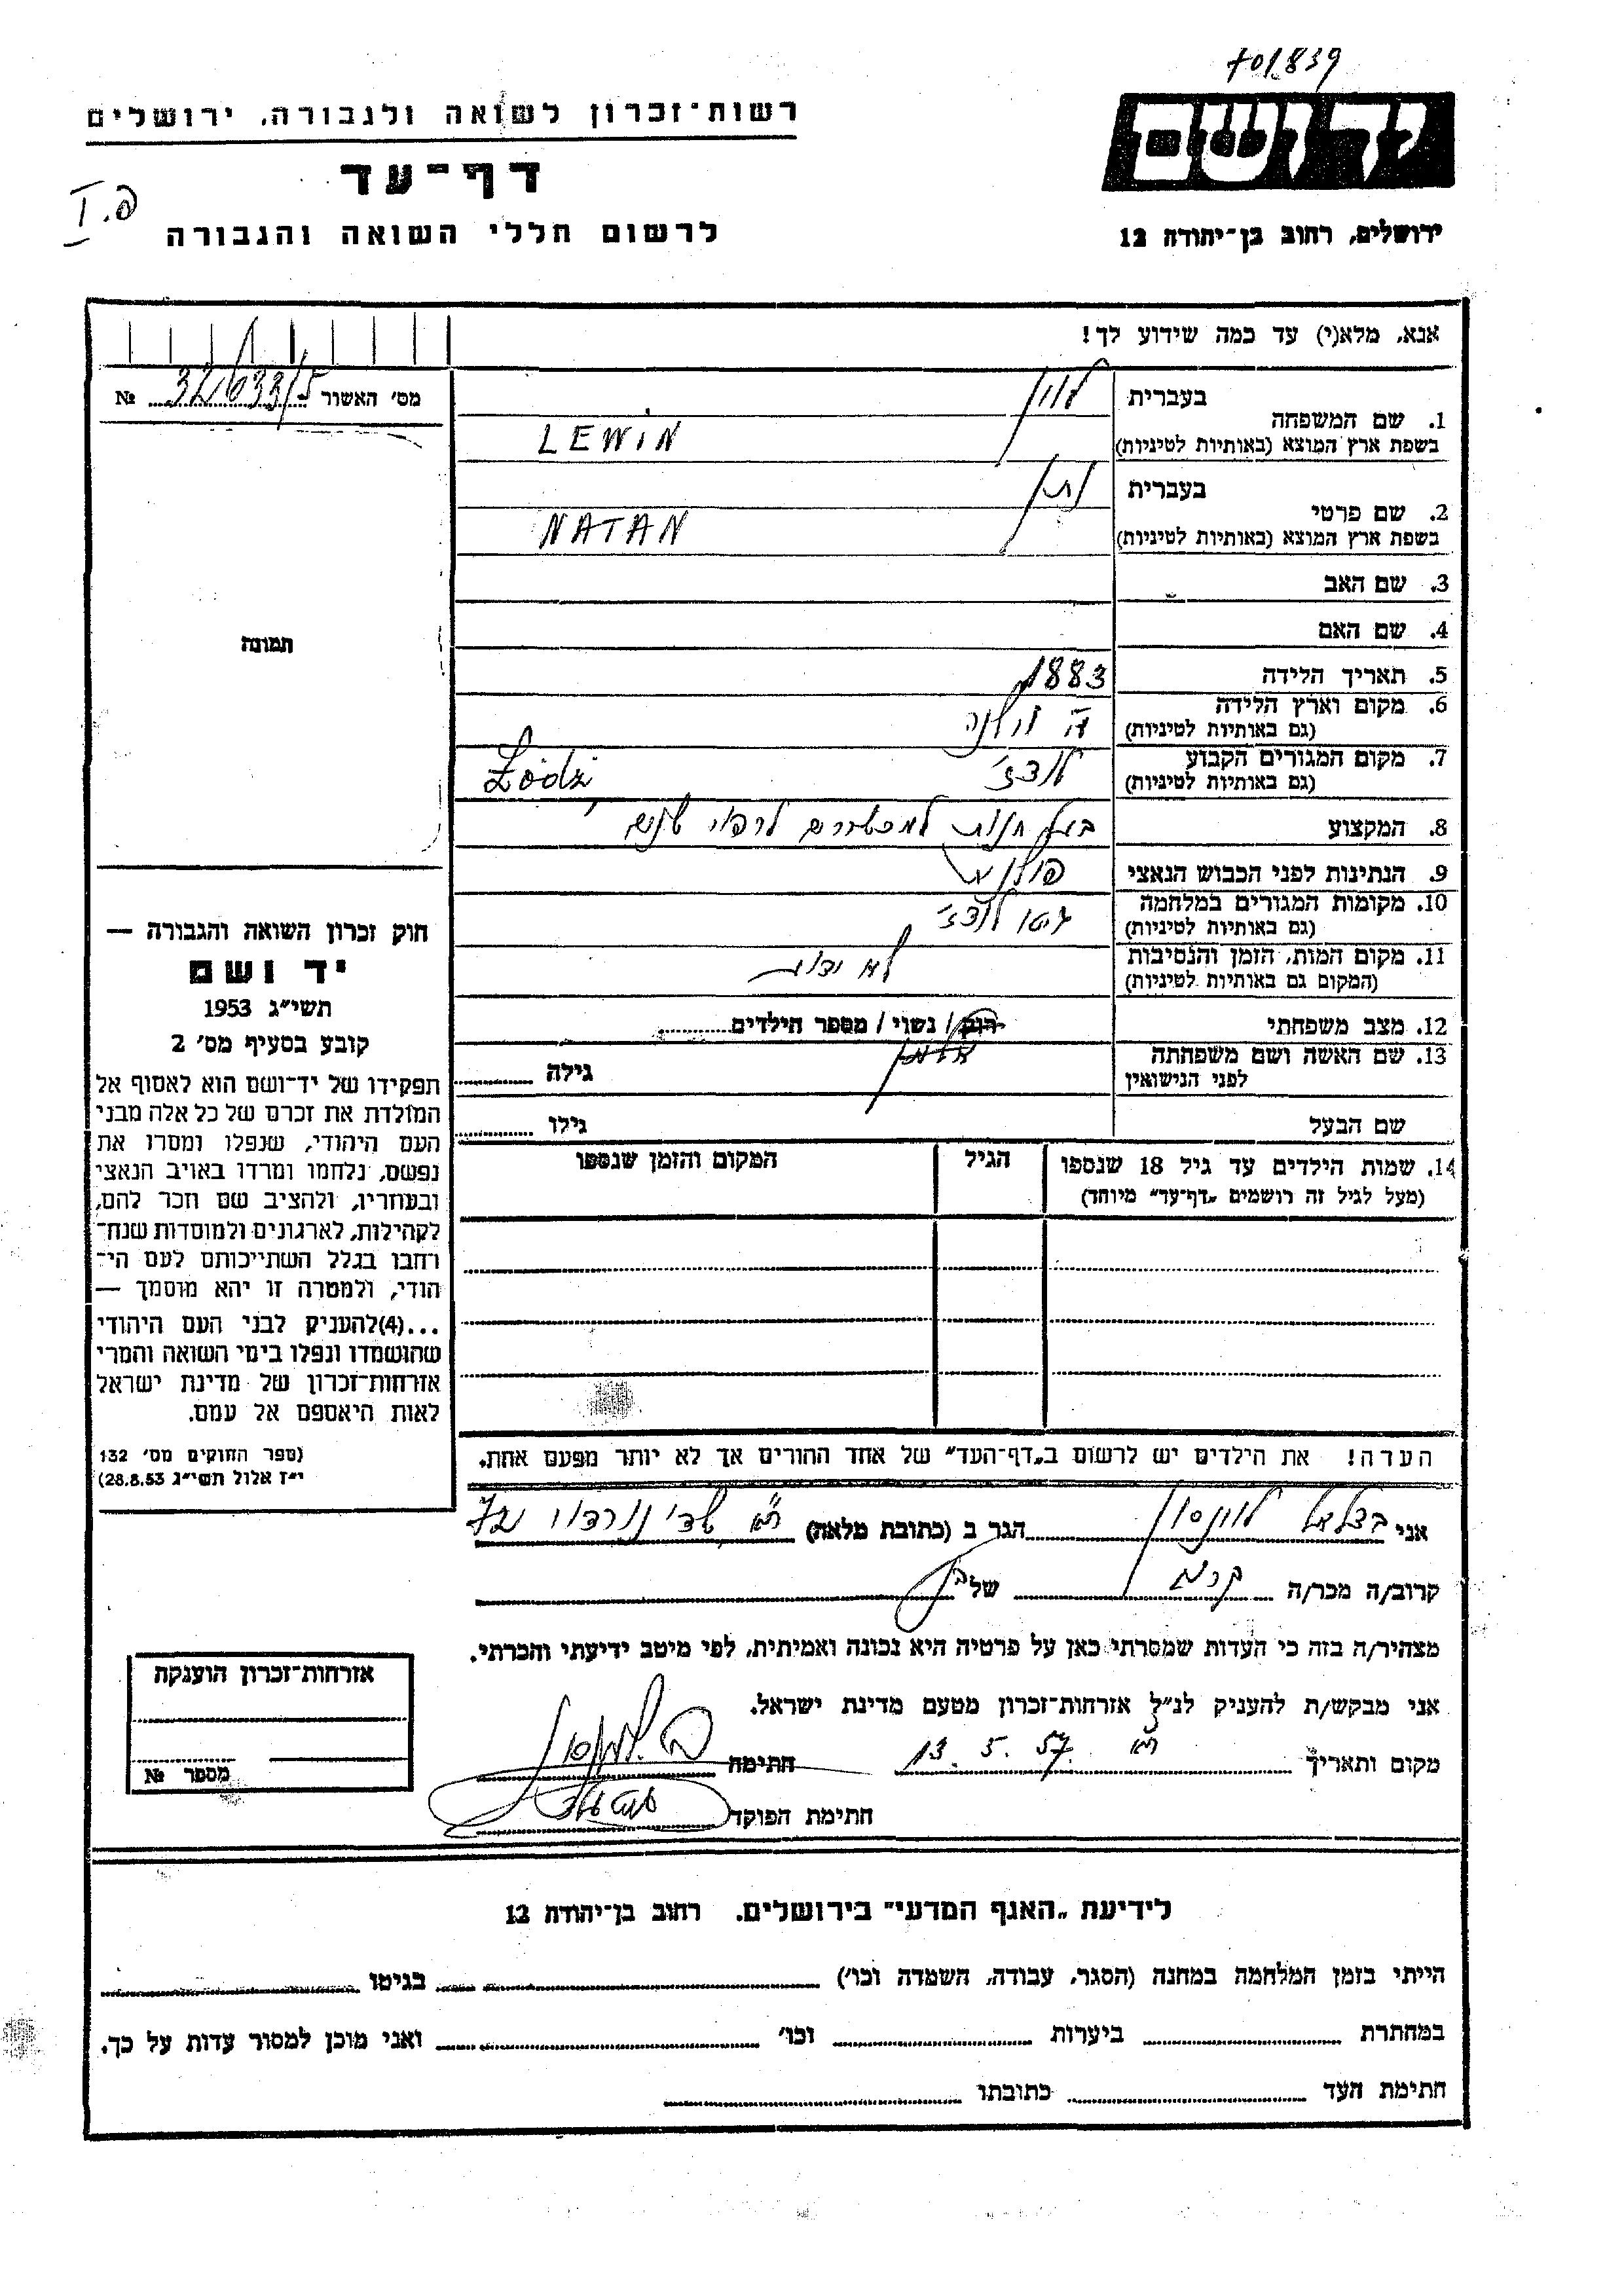 701839
רשות־זכרון לשואה ולגבורה, ירושלים
דף־עד
לרשום חללי השואה והגבורה
פ. I
ידושם
ירושלים, רחוב בן־יהודה 12
אנא, מלא(י) עד כמה שידוע לך!
מס׳ האשור 32633/5 №
תמונה
חוק זכרון השואה והגבורה —
יד ושם
תשי״ג 1953
קובע בסעיף מס׳ 2
תפקידו של יד־ושם הוא לאסוף אל
המולדת את זכרם של כל אלה מבני
העם היהודי, שנפלו ומסרו את
נפשם, נלחמו ומרדו באויב הנאצי
ובעוזריו, ולהציב שם וזכר להם,
לקהילות, לארגונים ולמוסדות שנח־
רחבו בגלל השתייכותם לעם הי־
הודי, ולמטרה זו יהא מוסמך —
...(4)להעניק לבני העם היהודי
שהושמדו ונפלו בימי השואה והמרי
אזרחות־זכרון של מדינת ישראל
לאות היאספם אל עמם.
(ספר החוקים מס׳ 132
י״ז אלול תשי״ג 28.8.53)
בעברית לוין
1. שם המשפחה
בשפת ארץ המוצא (באותיות לטיניות) LEWIN
בעברית נתן
2. שם פרטי
בשפת ארץ המוצא (באותיות לטיניות) NATAN
3. שם האב
4. שם האם
5. תאריך הלידה 1883
6. מקום וארץ הלידה וילנה
(גם באותיות לטיניות)
7. מקום המגורים הקבוע לודז׳ Łódź
(גם באותיות לטיניות)
8. המקצוע בעל חנות למכשירים לרפוי שנים
9. הנתינות לפני הכבוש הנאצי פולנית
10. מקומות המגורים במלחמה גטו לודז׳
(גם באותיות לטיניות)
11. מקום המות, הזמן והנסיבות לא ידוע
(המקום גם באותיות לטיניות)
12. מצב משפחתי רווק / נשוי / מספר הילדים
13. שם האשה ושם משפחתה גילה
לפני הנישואין
שם הבעל גילו
14. שמות הילדים עד גיל 18 שנספו הגיל המקום והזמן שנספו
(מעל לגיל זה רושמים „דף־עד״ מיוחד)
הערה! את הילדים יש לרשום ב„דף־העד״ של אחד ההורים אך לא יותר מפעם אחת.
אני בצלאל לוינסון הגר ב (כתובת מלאה) ת״א שד׳ נורדוי
קרוב/ה מכר/ה של
מצהיר/ה בזה כי העדות שמסרתי כאן על פרטיה היא נכונה ואמיתית, לפי מיטב ידיעתי והכרתי.
אני מבקש/ת להעניק לנ״ל אזרחות־זכרון מטעם מדינת ישראל.
מקום ותאריך ת״א 13. 5. 57 חתימה
חתימת הפוקד
אזרחות־זכרון הוענקה
מספר №
לידיעת „האגף המדעי״ בירושלים. רחוב בן־יהודה 12
הייתי בזמן המלחמה במחנה (הסגר, עבודה, השמדה וכו׳) בגיטו
במחתרת ביערות וכו׳ ואני מוכן למסור עדות על כך.
חתימת העד כתובתו